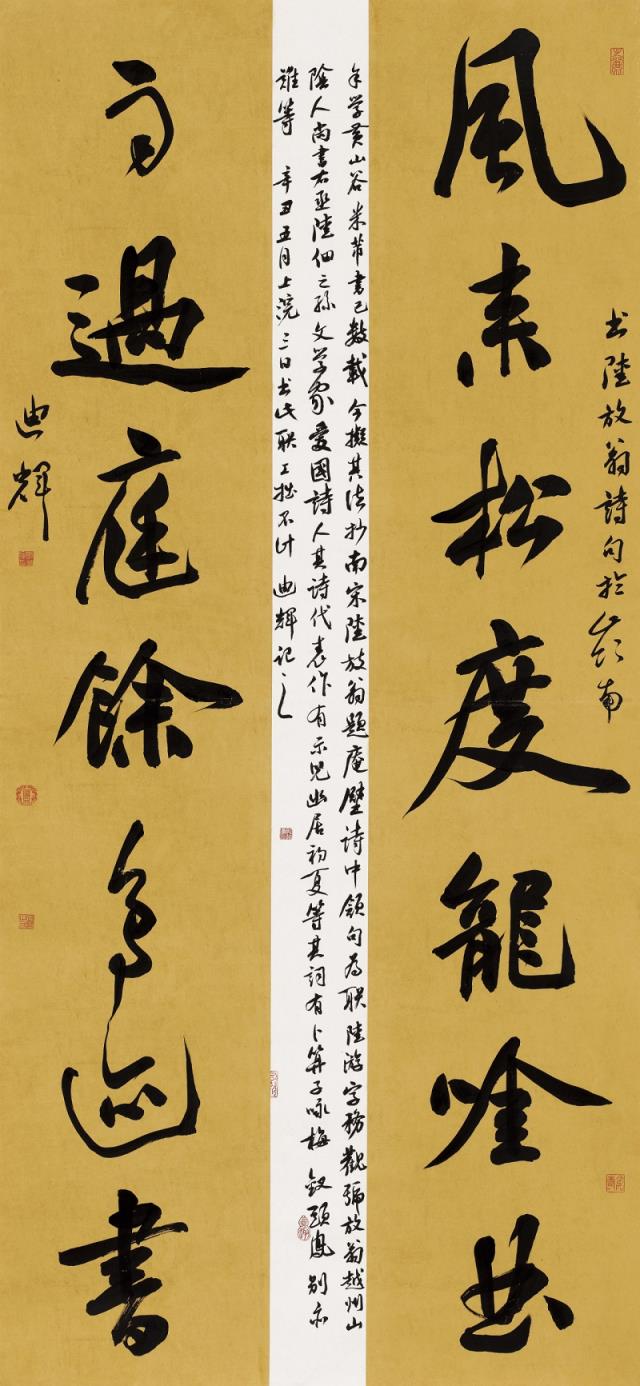 书陸放翁詩句於嶺南
風来松度龍吟曲
余学黄山谷米芾書已數載今擬其法抄南宋陸放翁題庵壁詩中領句為联陸游字務觀號放翁越州山
陰人尚書右丞陸佃之孫文学家愛國詩人其詩代表作有示児幽居初夏等其詞有卜算子咏梅釵頭鳳別亦
難等 辛丑五月上浣三日书此联工拙不计 迪輝記之
雨過庭餘鳥迹書
迪輝